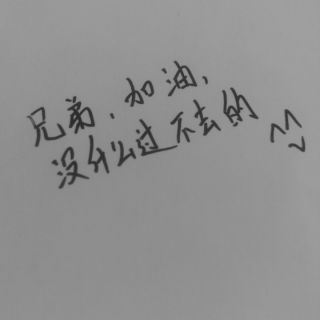 兄弟,加油,
没什么过不去的